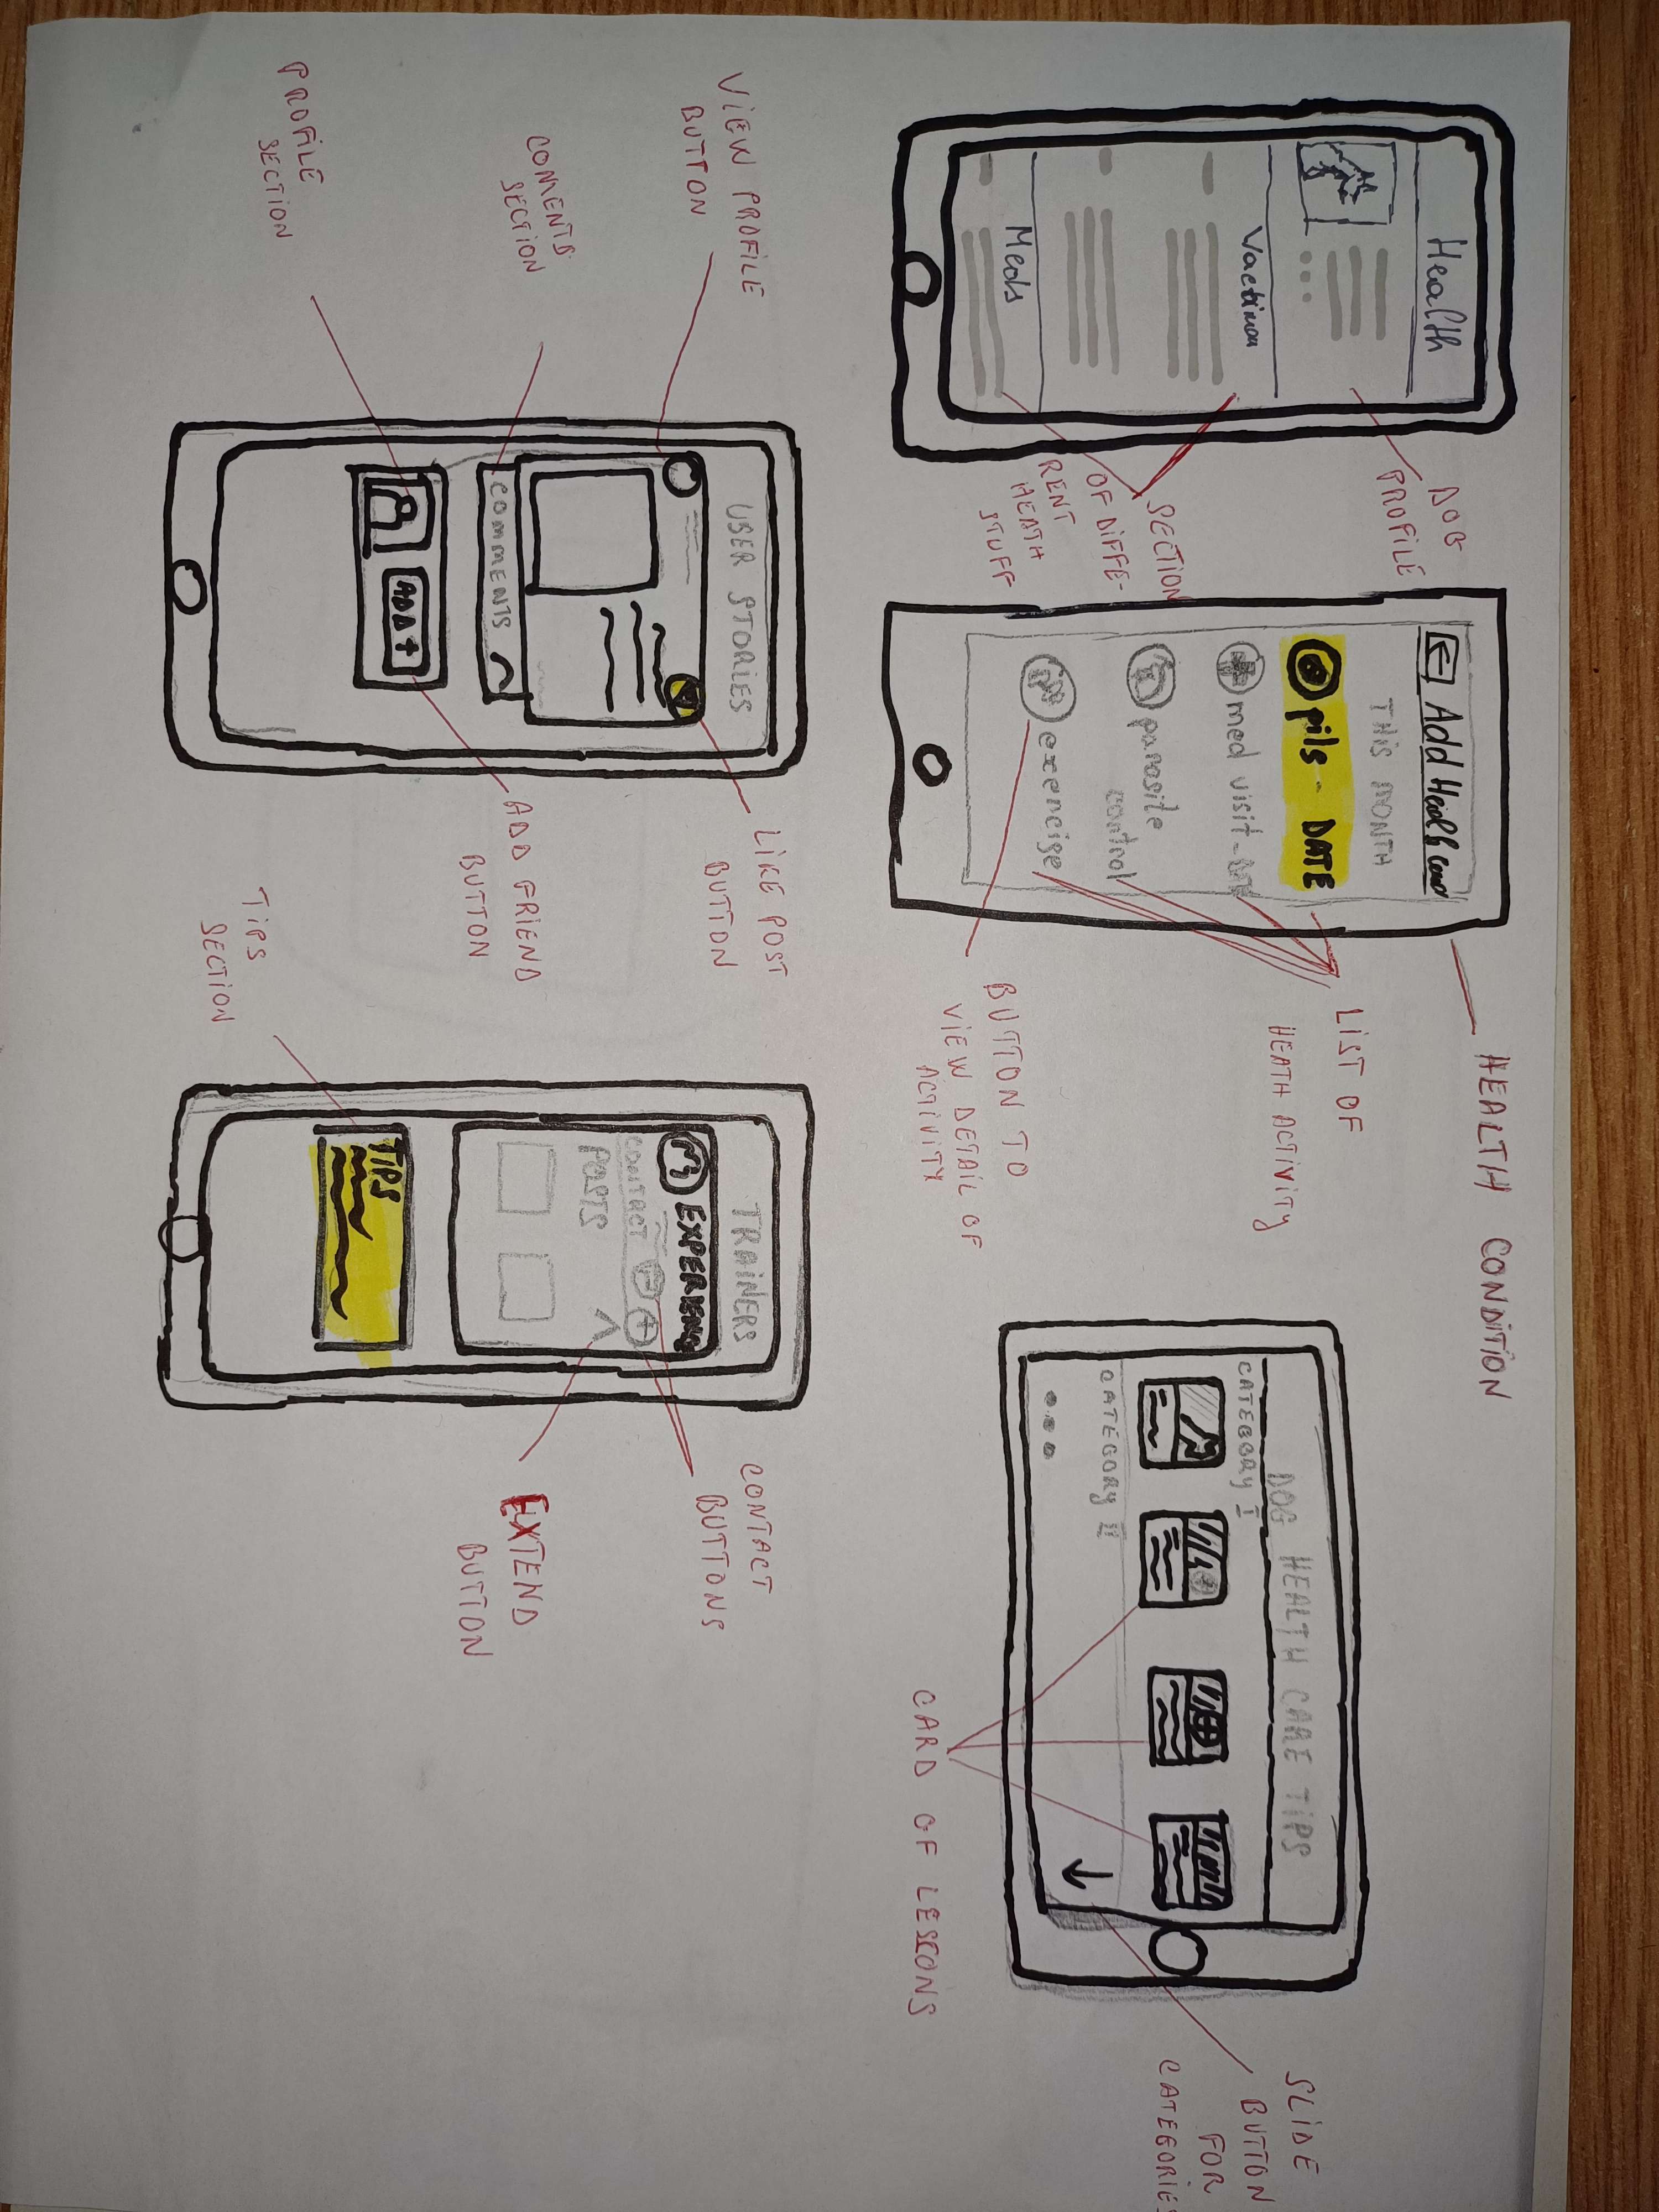 Health
Vactinon
Meds
DOG
PROFILE
SECTION
OF DIFFE-
RENT
HEATH
STUFF
Add Healh cond
THIS MONTH
pils - DATE
med visit -
parasite
control
exencise
HEALTH CONDITION
LIST OF
HEATH ACTIVITY
BUTTON TO
VIEW DETAIL OF
ACTIVITY
DOG HEALTH CARE TIPS
CATEGORY I
CATEGORY II
CARD OF LESSONS
SLIDE
BUTTON
FOR
CATEGORIES
VIEW PROFILE
BUTTON
COMENTS
SECTION
PROFILE
SECTION
USER STORIES
COMMENTS
ADD +
LIKE POST
BUTTON
ADD FRIEND
BUTTON
TIPS
SECTION
TRAINERS
EXPERIENC
CONTACT
POSTS
TIPS
CONTACT
BUTTONS
EXTEND
BUTTON